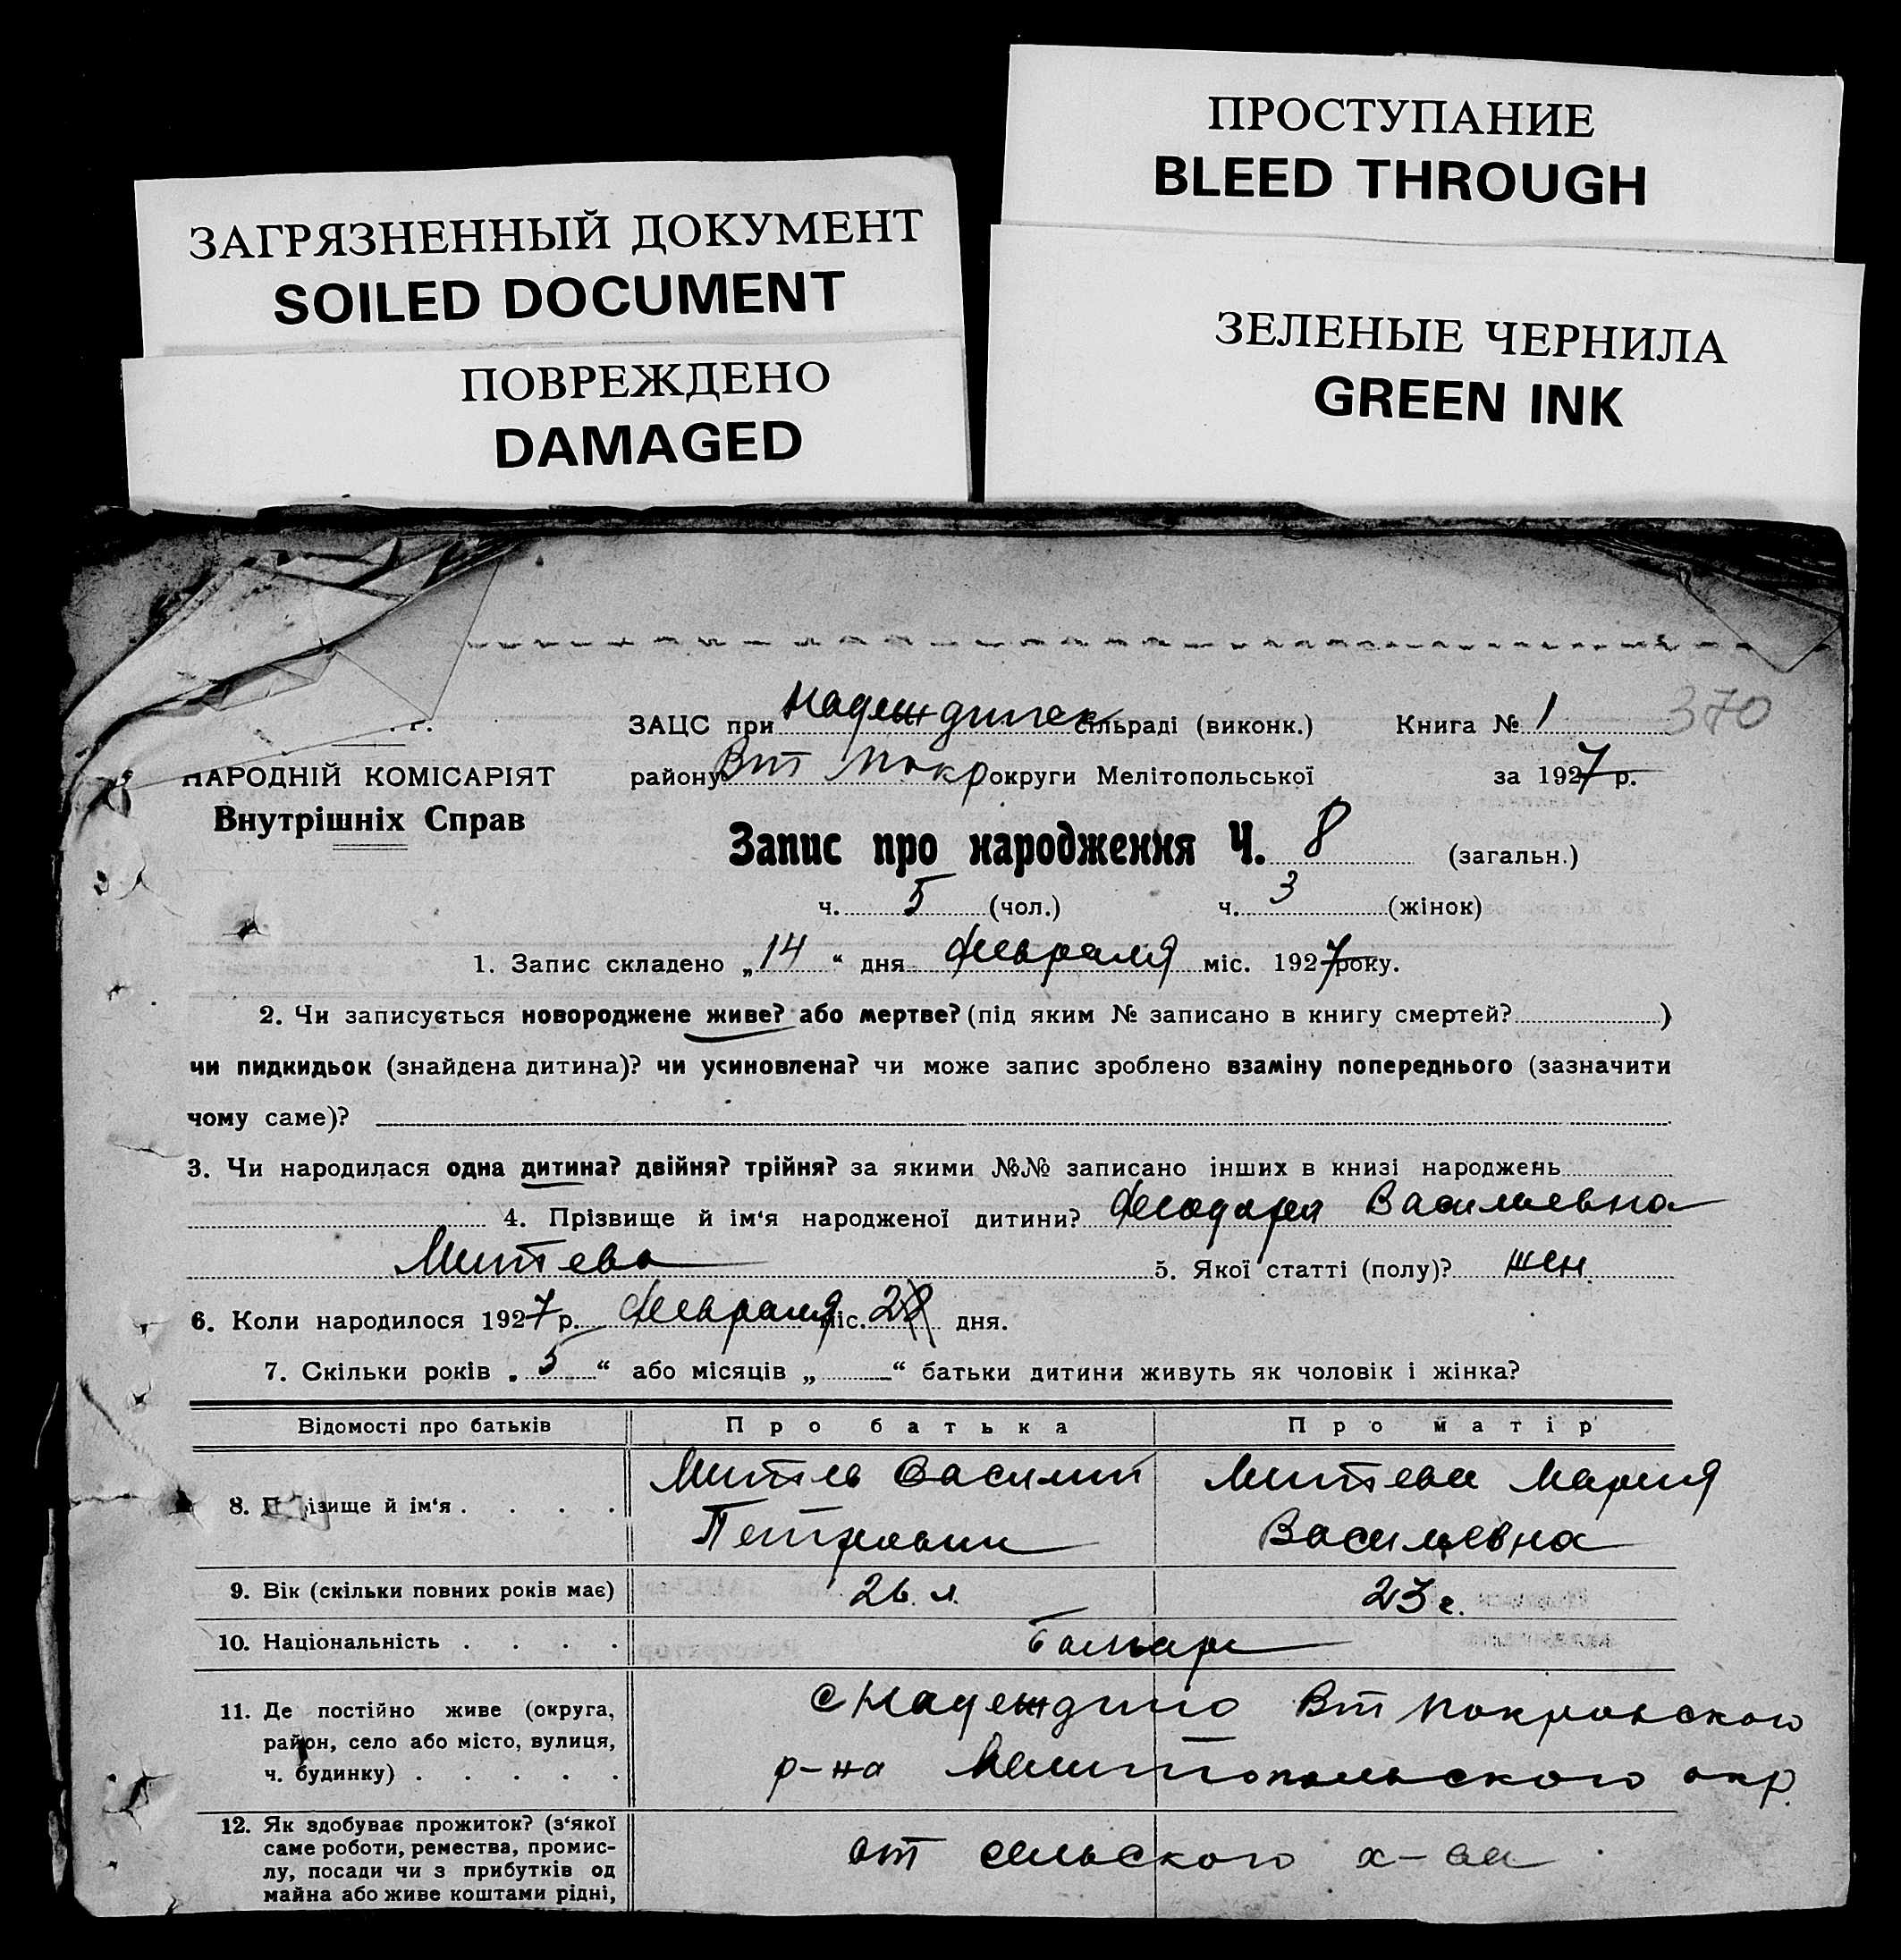 ПРОСТУПАНИЕ
BLEED THROUGH
ЗАГРЯЗНЕННЫЙ ДОКУМЕНТ
SOILED DOCUMENT
ЗЕЛЕНЫЕ ЧЕРНИЛА
GREEN INK
ПОВРЕЖДЕНО
DAMAGED
ЗАЦС при Надеждинск сільраді (виконк.) Книга № 1 370
НАРОДНІЙ КОМІСАРІЯТ
району Вт Покр округи Мелітопольської за 1927 р.
Внутрішніх Справ
Запис про народження Ч. 8 (загальн.)
ч. 5 (чол.) ч. 3 (жінок)
1. Запис складено „14“ дня февраля міс. 1927 року.
2. Чи записується новороджене живе? або мертве? (під яким № записано в книгу смертей? )
чи пидкидьок (знайдена дитина)? чи усиновлена? чи може запис зроблено взаміну попереднього (зазначити
чому саме)?
3. Чи народилася одна дитина? двійня? трійня? за якими №№ записано інших в книзі народжень
4. Прізвище й ім‘я народженої дитини? Васильевна
Митева 5. Якої статті (полу)? жен.
6. Коли народилося 1927 р. февраля міс. дня.
7. Скільки років „5“ або місяців „ “ батьки дитини живуть як чоловік і жінка?
Відомості про батьків Про батька Про матір
8. Прізвище й ім‘я . . . . Митев Василий Митева Мария
Петрович Васильевна
9. Вік (скільки повних років має) 26 л. 23 г.
10. Національність . . . . болгаре
11. Де постійно живе (округа, с Надеждино Вт Покровского
район, село або місто, вулиця,
ч. будинку) . . . . . р-на Мелитопольского окр.
12. Як здобуває прожиток? (з‘якої
саме роботи, ремества, промис- от сельского х-ва
лу, посади чи з прибутків од
майна або живе коштами рідні,